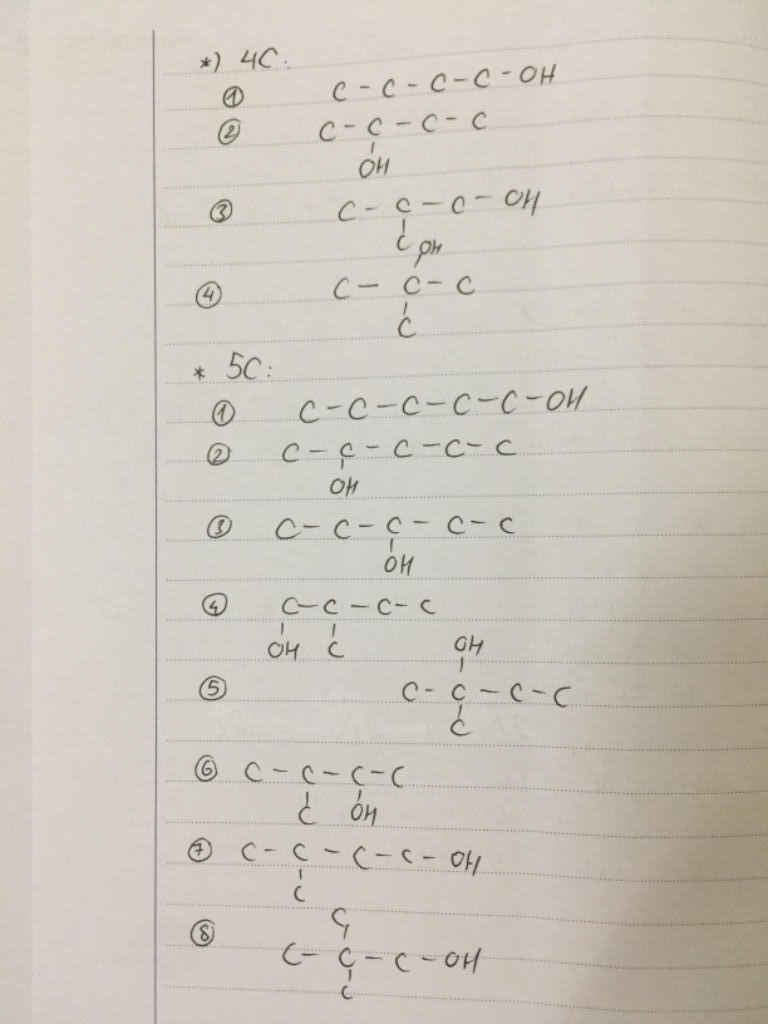 *) 4C:
① C - C - C - C - OH
② C - C - C - C
OH
③ C - C - C - OH
C OH
④ C - C - C
C
* 5C:
① C - C - C - C - C - OH
② C - C - C - C - C
OH
③ C - C - C - C - C
OH
④ C - C - C - C
OH C
OH
⑤ C - C - C - C
C
⑥ C - C - C - C
C OH
⑦ C - C - C - C - OH
C
C
⑧ C - C - C - OH
C